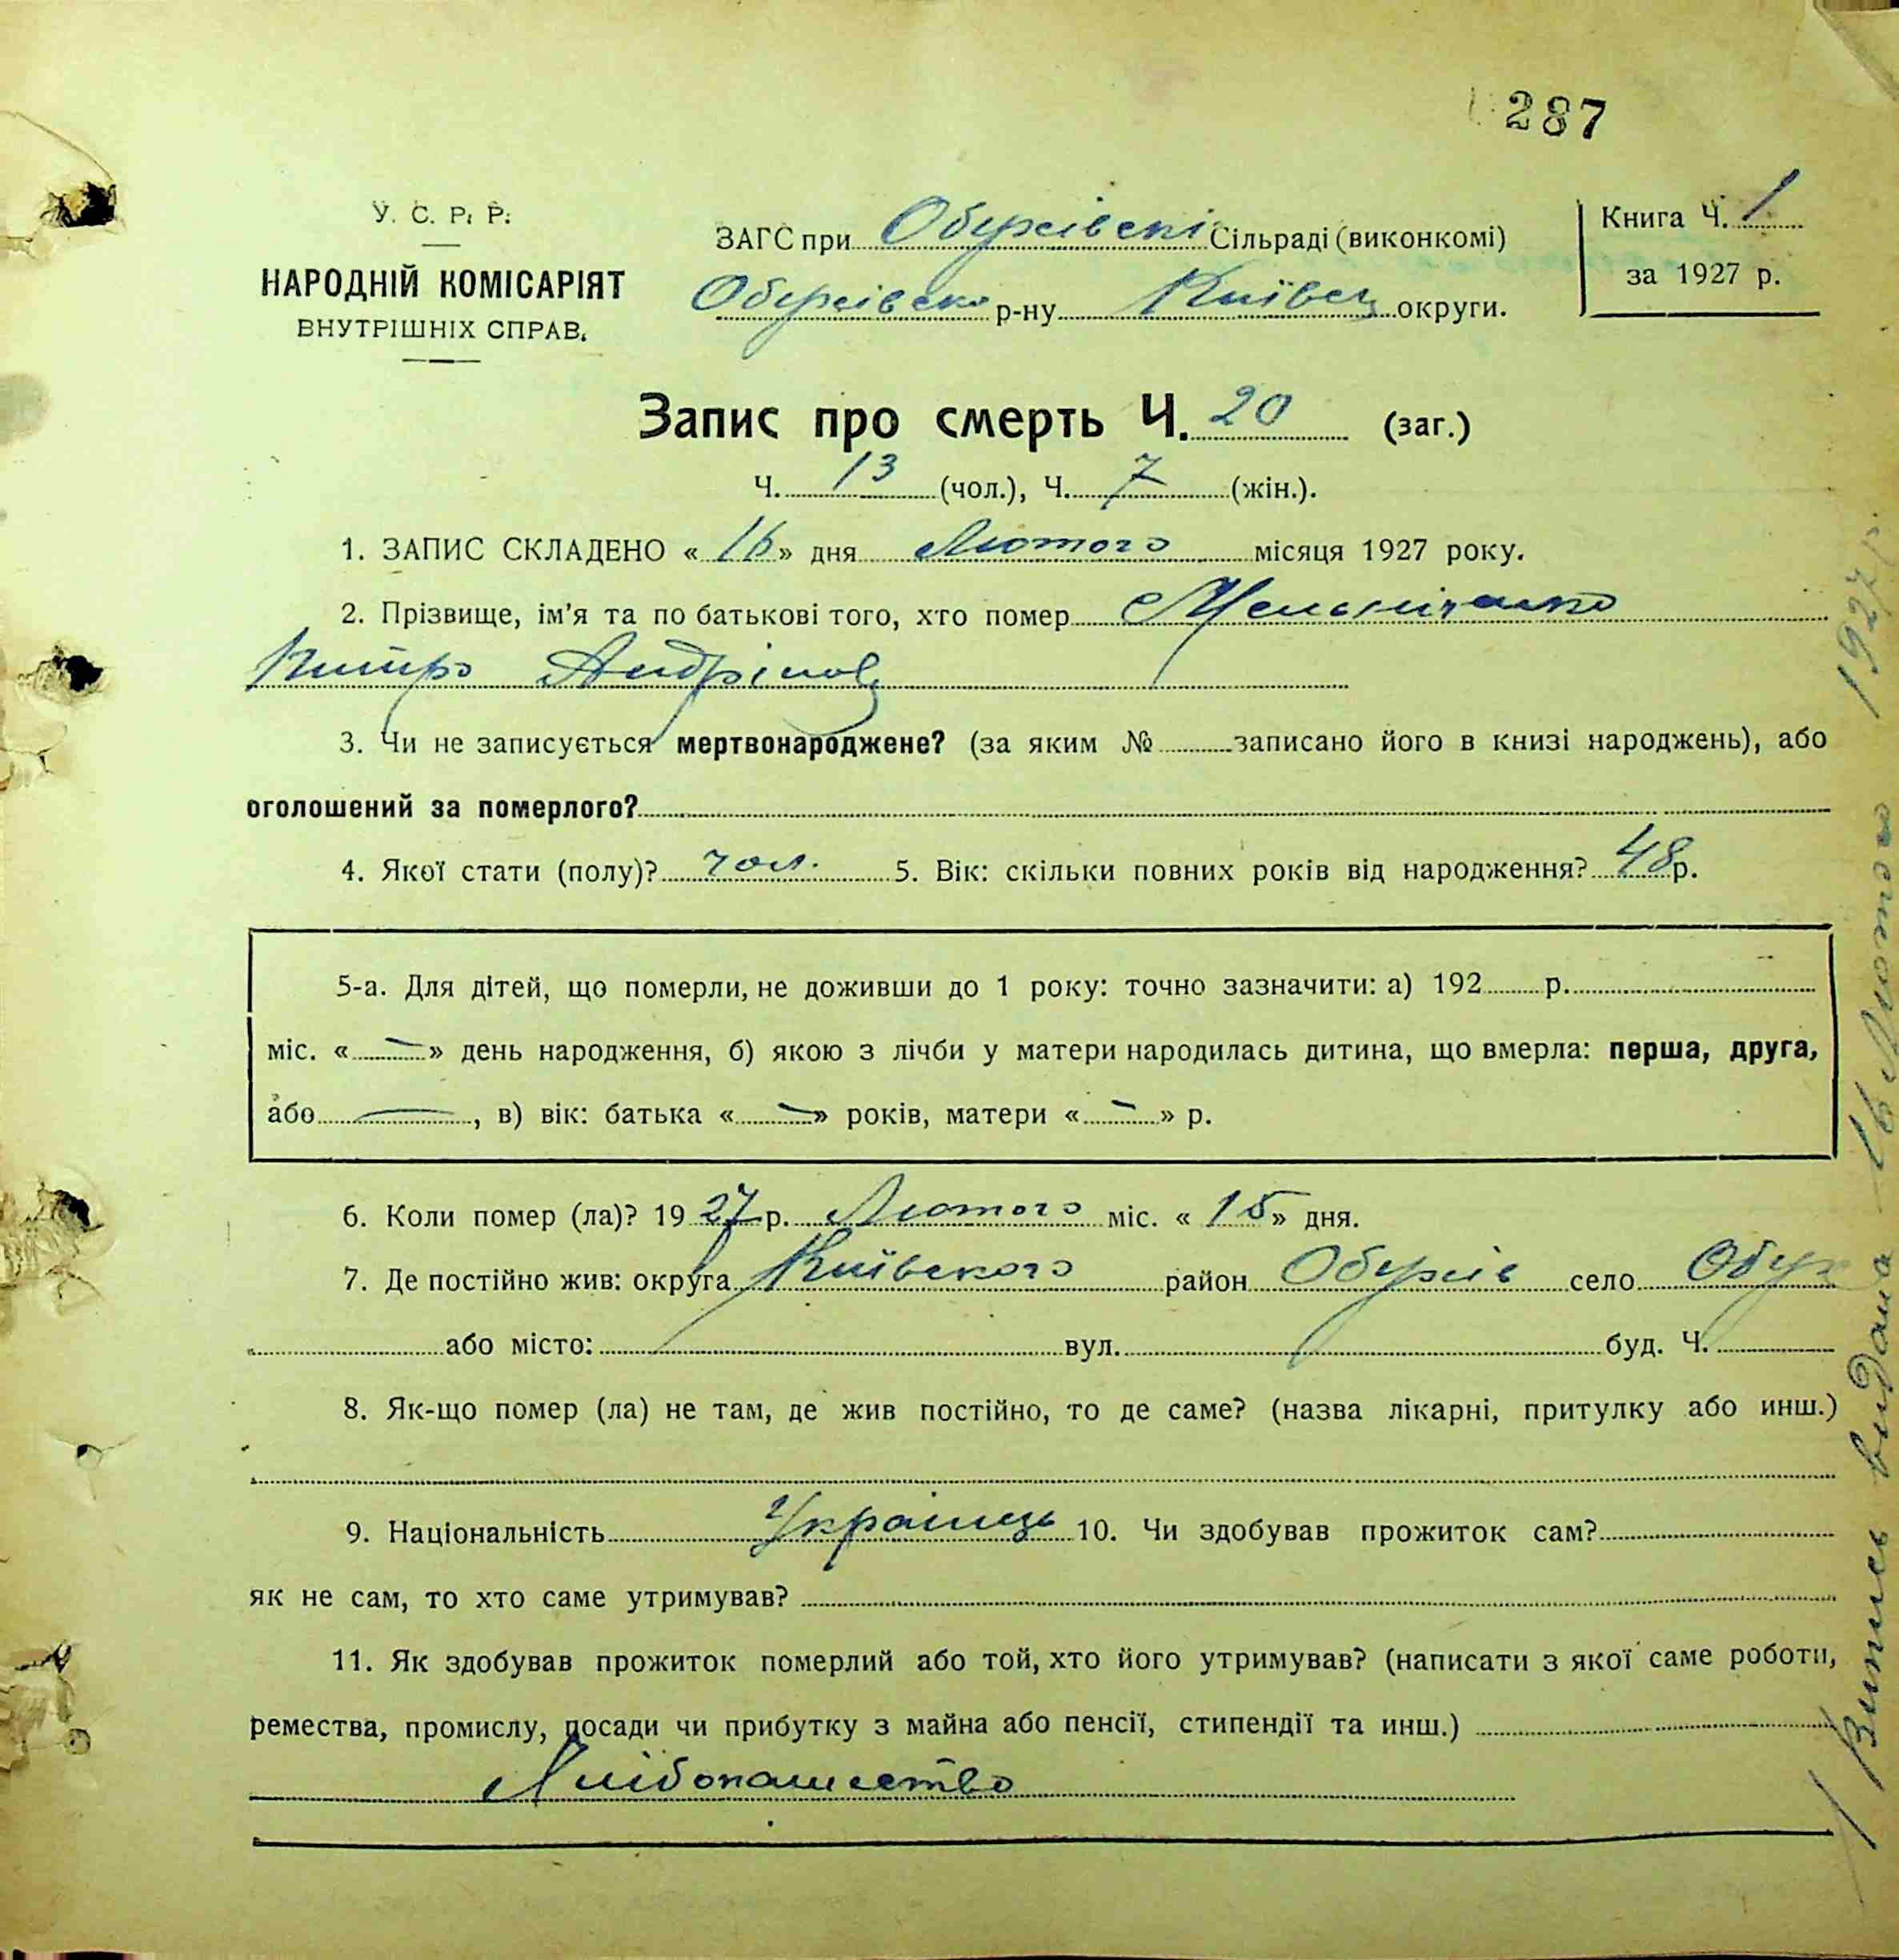 287
У. С. Р. Р.
НАРОДНІЙ КОМІСАРІЯТ
ВНУТРІШНІХ СПРАВ.
ЗАГС при Обухівскі Сільраді (виконкомі)
Обухівско р-ну Київськ округи.
Книга Ч. 1
за 1927 р.
Запис про смерть Ч. 20 (заг.)
Ч. 13 (чол.), Ч. 7 (жін.).
1. ЗАПИС СКЛАДЕНО « 16 » дня Лютого місяця 1927 року.
2. Прізвище, ім'я та по батькові того, хто помер Мельниченко
Андріnов
3. Чи не записується мертвонароджене? (за яким № записано його в книзі народжень), або
оголошений за померлого?
4. Якої стати (полу)? чол. 5. Вік: скільки повних років від народження? 48 р.
5-а. Для дітей, що померли, не доживши до 1 року: точно зазначити: а) 192 р.
міс. « — » день народження, б) якою з лічби у матери народилась дитина, що вмерла: перша, друга,
або — , в) вік: батька « — » років, матери « — » р.
6. Коли помер (ла)? 19 27 р. Лютого міс. « 15 » дня.
7. Де постійно жив: округа Київского район Обухів село Обух
або місто: вул. буд. Ч.
8. Як-що помер (ла) не там, де жив постійно, то де саме? (назва лікарні, притулку або инш.)
9. Національність Українець 10. Чи здобував прожиток сам?
як не сам, то хто саме утримував?
11. Як здобував прожиток померлий або той, хто його утримував? (написати з якої саме роботи,
ремества, промислу, посади чи прибутку з майна або пенсії, стипендії та инш.)
Хлібопашество
Витись видана 16 Лютого 1927 р.